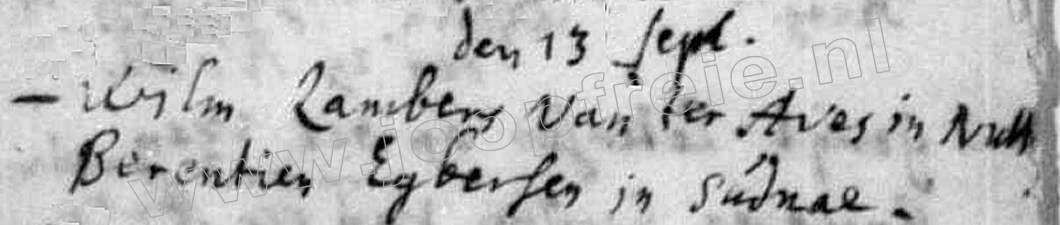 den 13 sept.
– Wilm Lambers Van der Aves in Nutt
Berentien Egbersen in Sùdnae.
www.joopfreie.nl